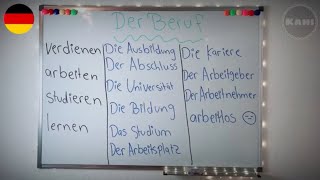 Der Beruf
verdienen
arbeiten
studieren
lernen
Die Ausbildung
Der Abschluss
Die Universität
Die Bildung
Das Studium
Der Arbeitsplatz
Die Kariere
Der Arbeitgeber
Der Arbeitnehmer
arbeitlos
KAHI